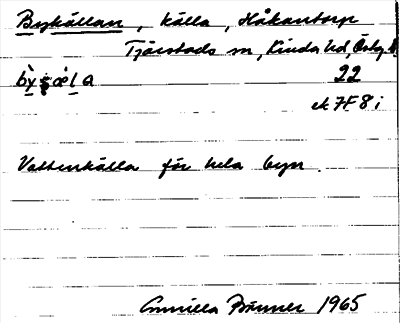 Bykällan, källa, Håkantorp
Tjärstads sn, Kinda hd, Östg.
22
ek 7F8i
Vattenkälla för hela byn.
Gunilla 1965